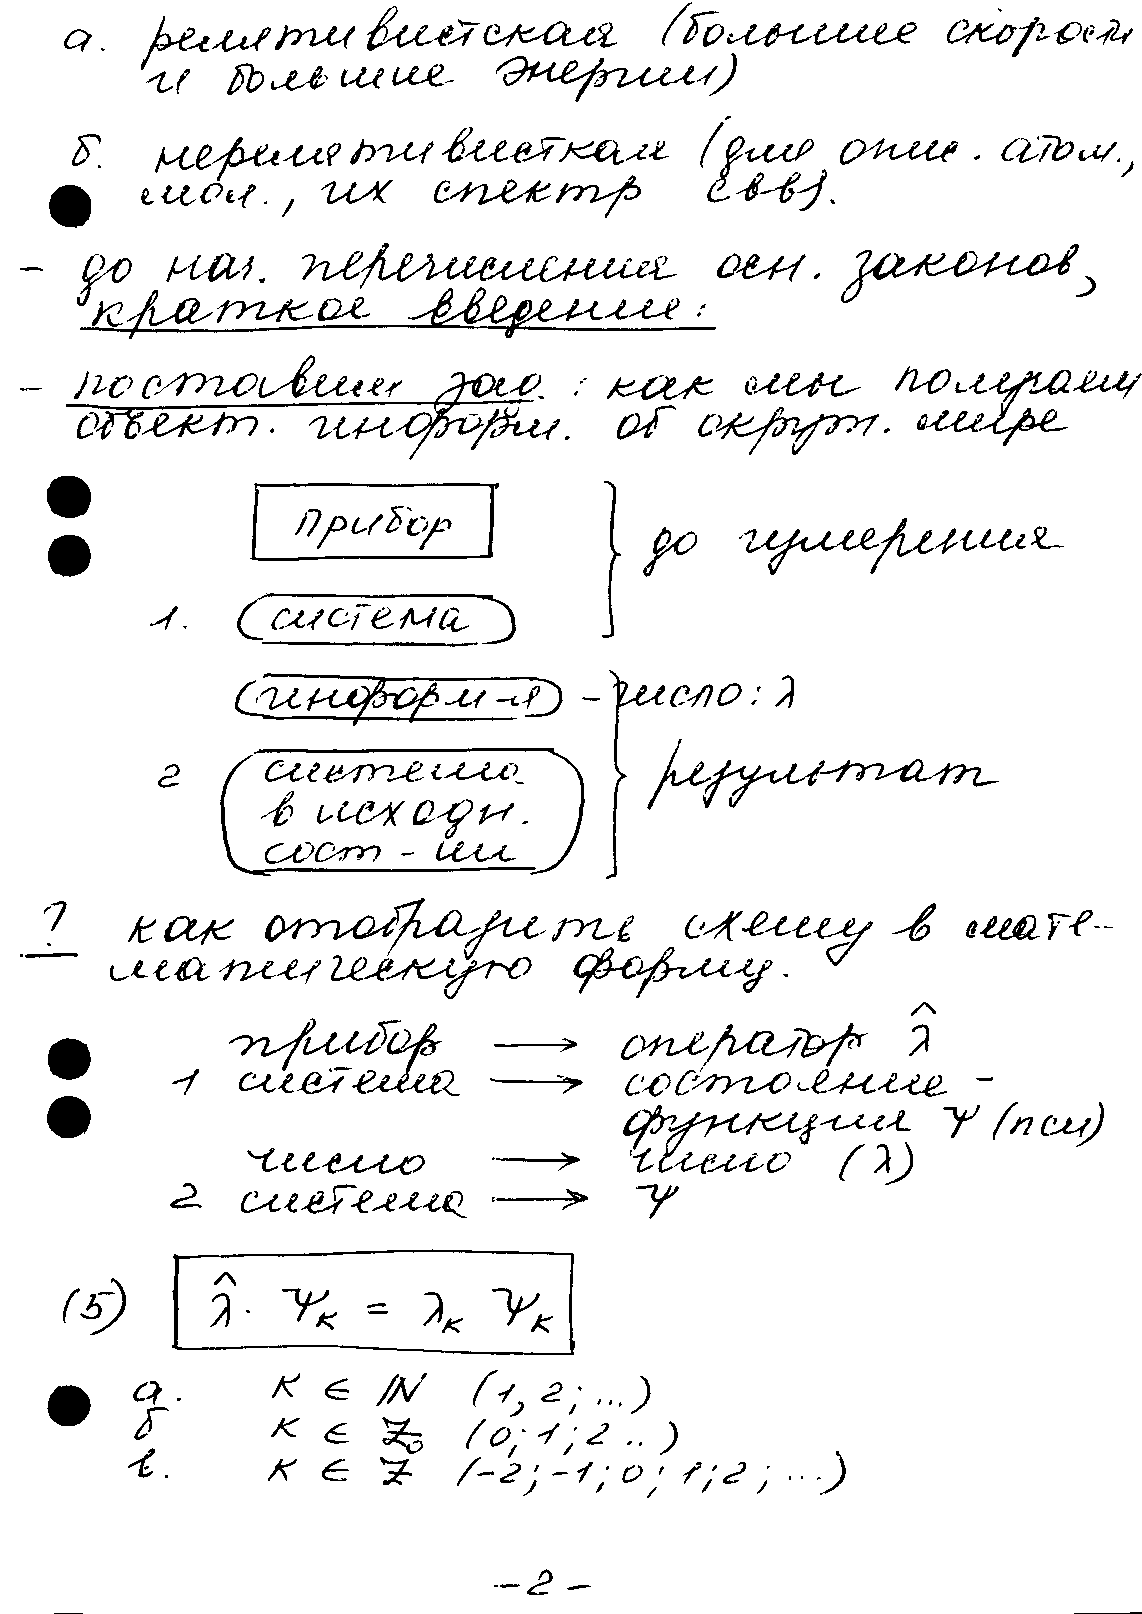 а. релятивистская (большие скорости
и большие энергии)
б. нерелятивисткая (для опис. атом.,
мол., их спектр св-в).
- до нач. перечисления осн. законов,
краткое введение:
- поставим зад.: как мы получаем
объект. информ. об окруж. мире
прибор
до измерения
1. система
информ-я - число: λ
2 система
в исходн.
сост-ии
результат
? как отобразить схему в мате-
матическую форму.
прибор → оператор λ̂
1 система → состояние -
функция Ψ (пси)
число → число (λ)
2 система → Ψ
(5) λ̂ · Ψₖ = λₖ Ψₖ
а. к ∈ ℕ (1, 2; ...)
б к ∈ ℤ₀ (0; 1; 2 ..)
в. к ∈ ℤ (-2; -1; 0; 1; 2; ...)
- 2 -